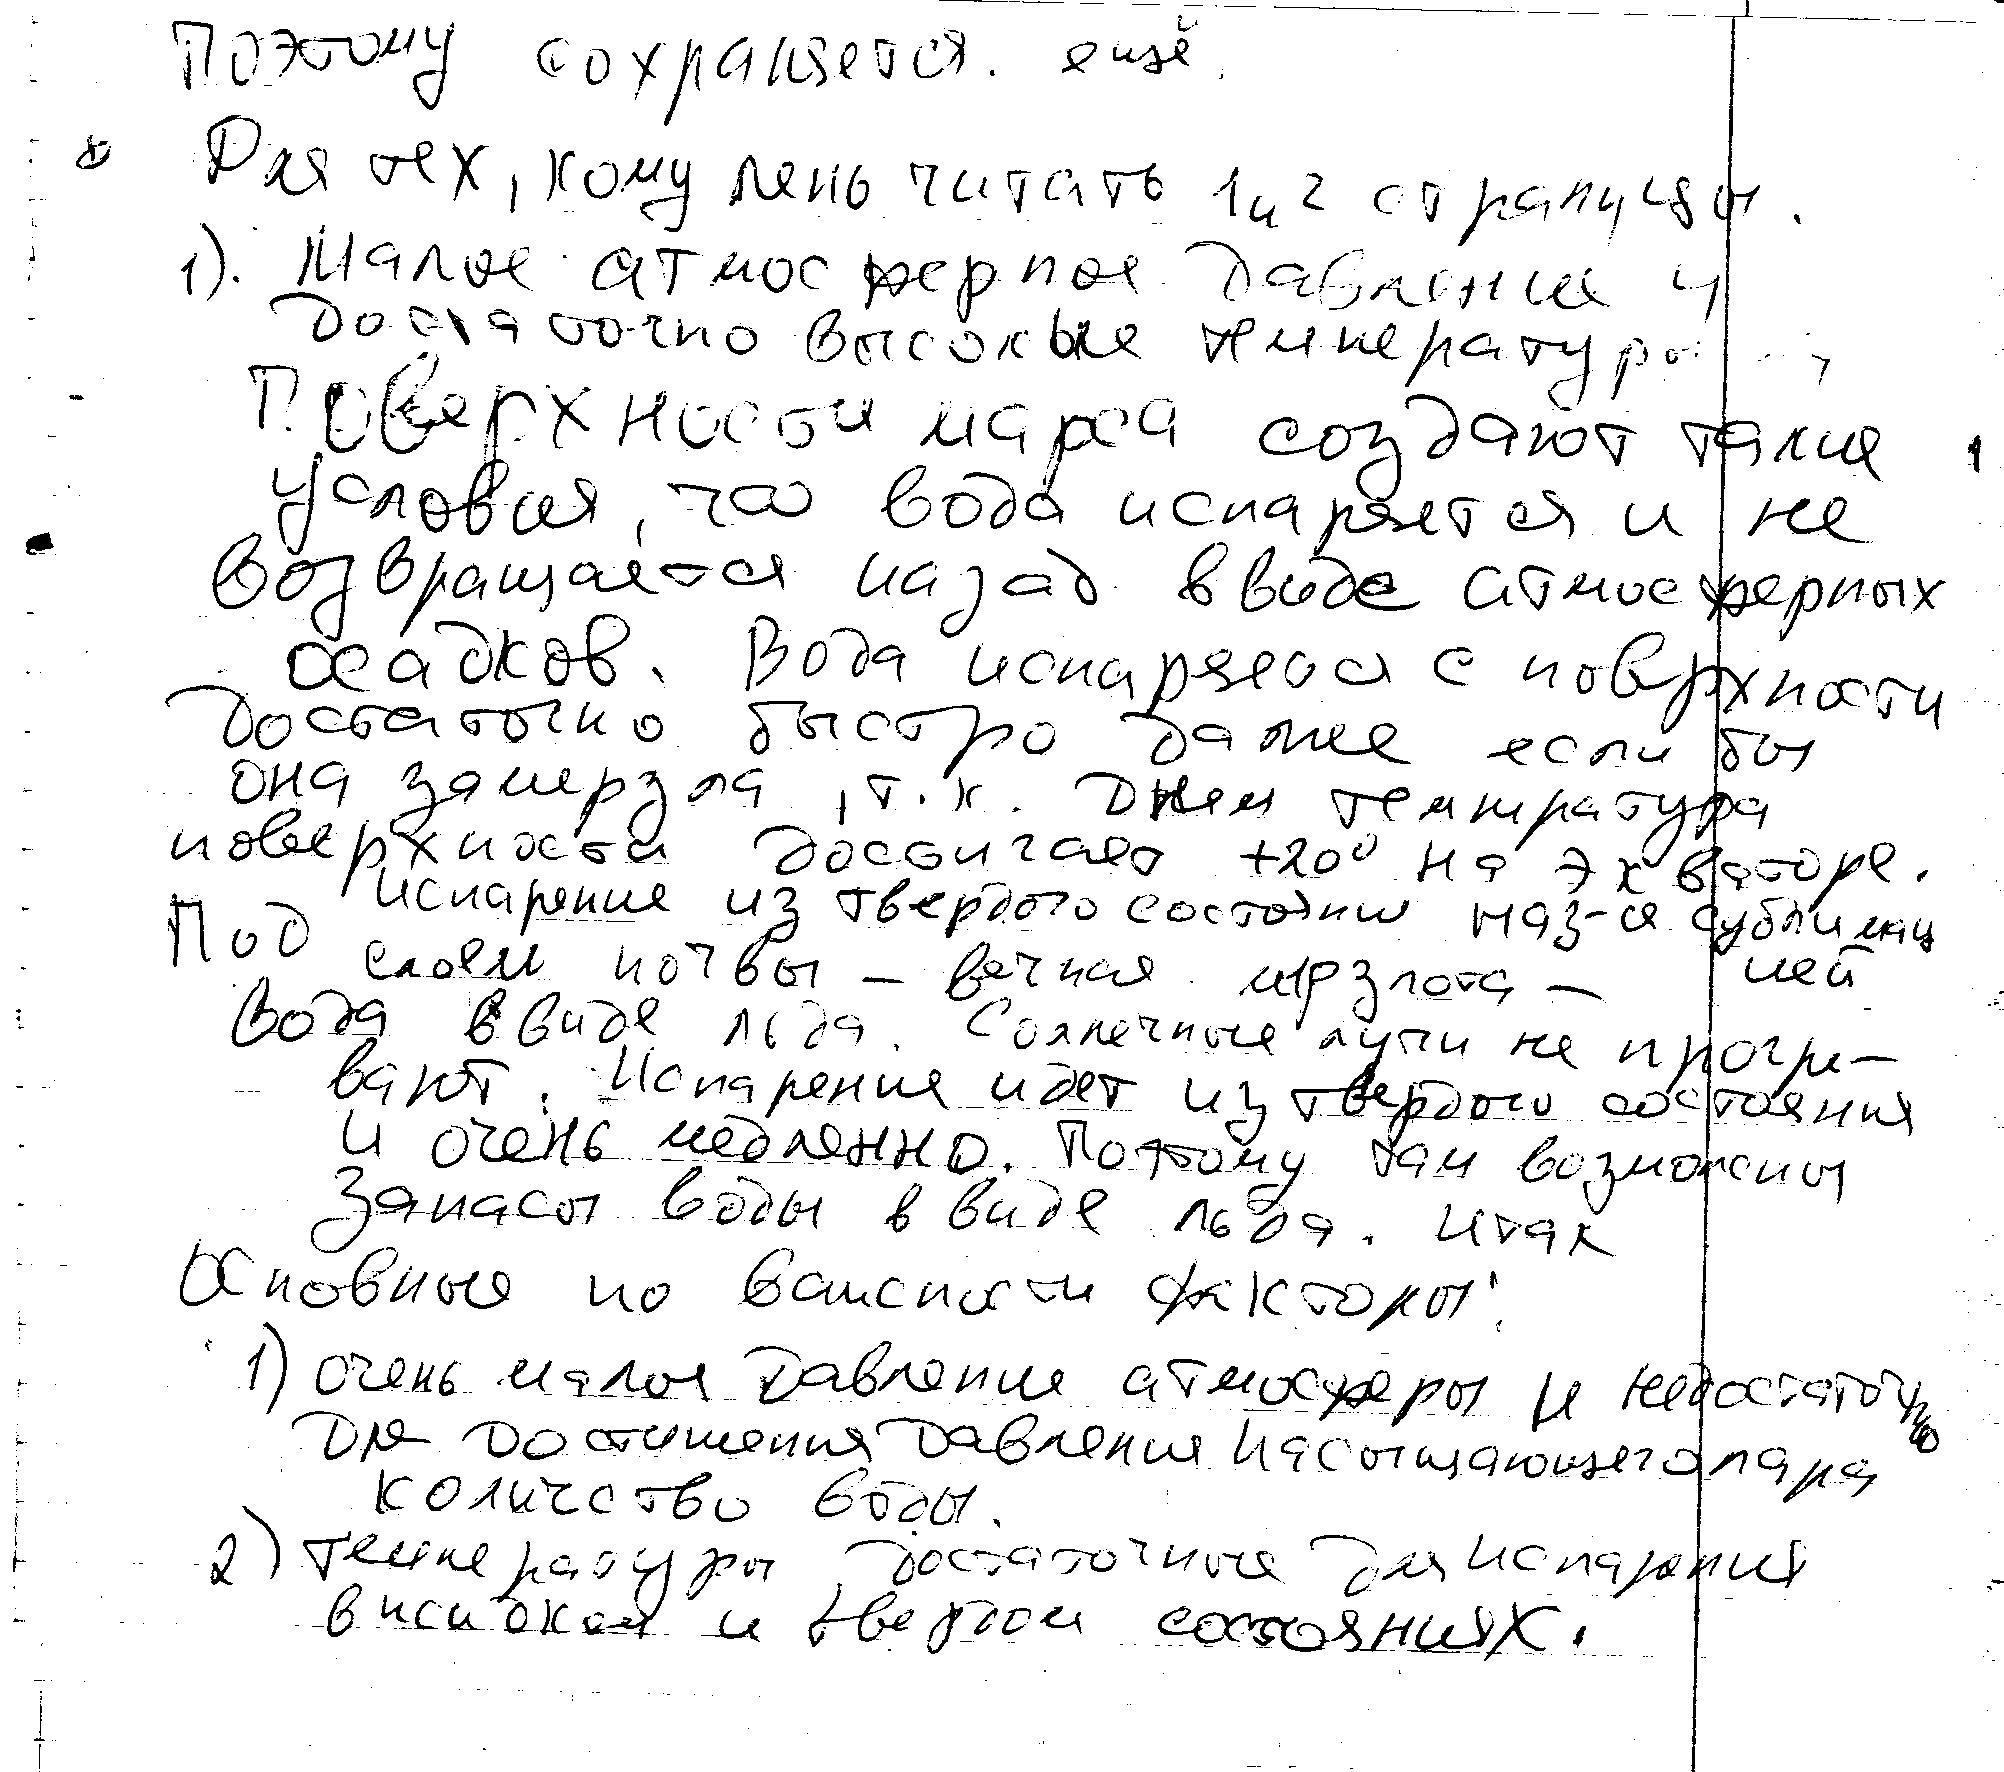 Поэтому сохраняется. ещё.
Для тех, кому лень читать 1 и 2 страницы.
1). Малое атмосферное давление и
достаточно высокие температуры
поверхности марса создают такие
условия, что вода испаряется и не
возвращается назад в виде атмосферных
осадков. Вода испаряется с поверхности
достаточно быстро даже если бы
она замерзла, т.к. днем температура
поверхности достигает +20° на экваторе.
испарение из твердого состояния наз-ся сублимац
ией
Под слоем почвы – вечная мерзлота –
вода в виде льда. Солнечные лучи не прогре-
вают. Испарение идет из твердого состояния
и очень медленно. Поэтому там возможны
запасы воды в виде льда. Итак
Основные по важности факторы:
1) очень малое давление атмосферы и недостаточно
для достижения давления насыщающего пара
количество воды.
2) температуры достаточные для испарения
в жидком и твердом состояниях.